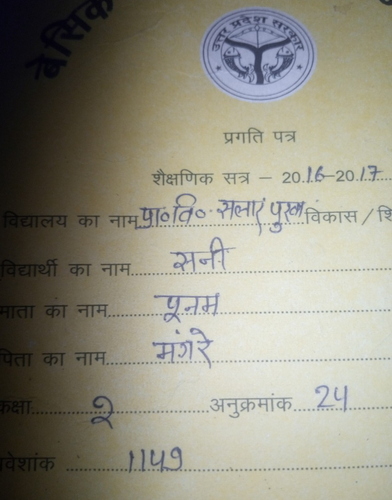 बेसिक
उत्तर प्रदेश सरकार
प्रगति पत्र
शैक्षणिक सत्र – 2016–2017
विद्यालय का नाम प्रा०वि० सलारपुर विकास / शि
विद्यार्थी का नाम सनी
माता का नाम पूनम
पिता का नाम मंगरे
कक्षा 2 अनुक्रमांक 24
वेशांक 1149